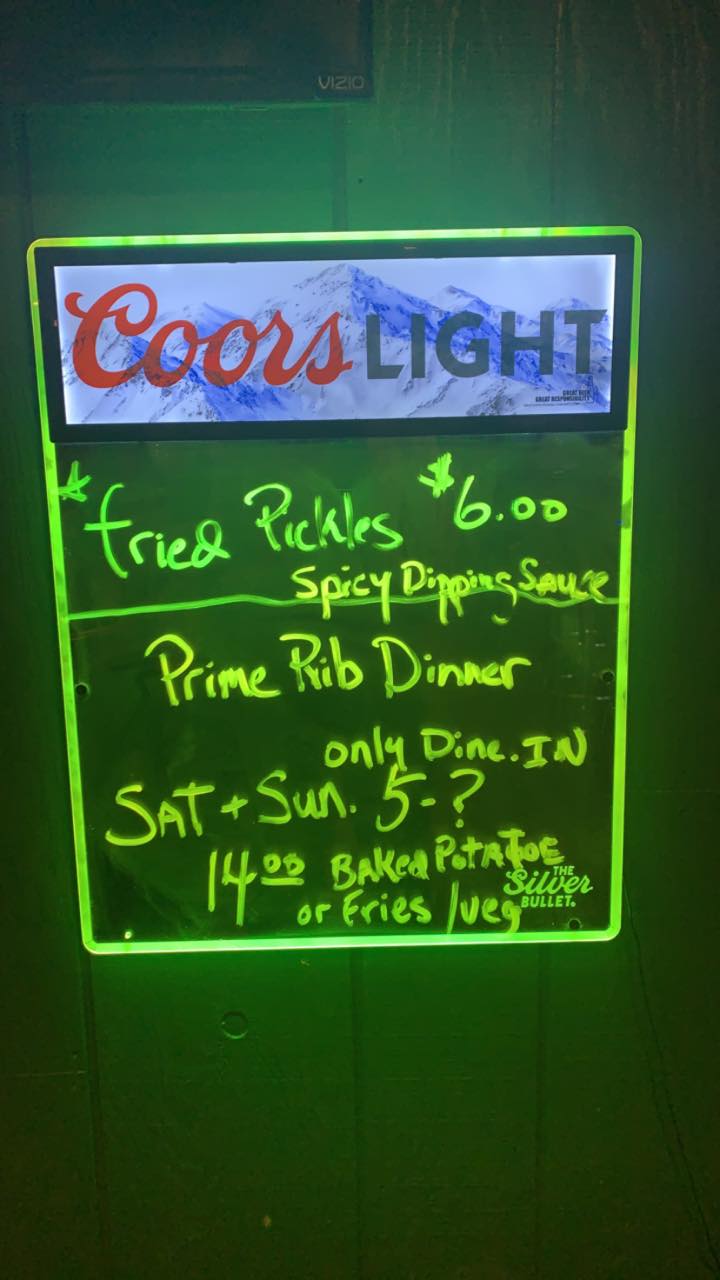 VIZIO
Coors LIGHT
GREAT BEER
GREAT RESPONSIBILITY
Fried Pickles $6.00
Spicy Dipping Sauce
Prime Rib Dinner
only Dine.IN
SAT + Sun. 5-?
14.00 BAKed PotATOE
or Fries /veg
THE
Silver
BULLET.